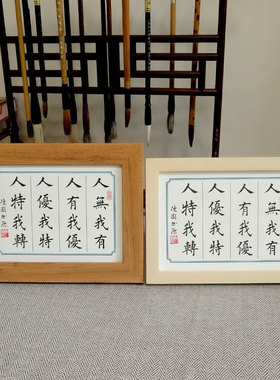 人無我有
人有我優
人優我特
人特我轉
人無我有
人有我優
人優我特
人特我轉